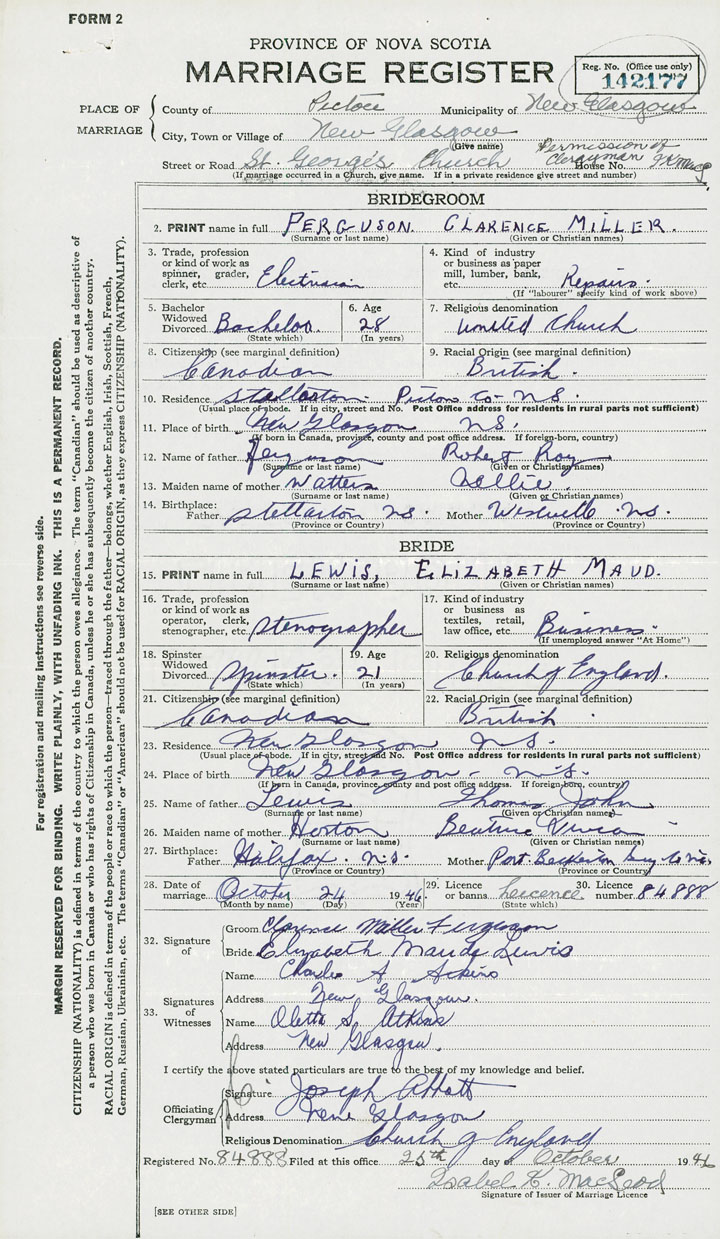 FORM 2
PROVINCE OF NOVA SCOTIA
MARRIAGE REGISTER
Reg. No. (Office use only)
142177
PLACE OF MARRIAGE
County of Pictou Municipality of New Glasgow
City, Town or Village of New Glasgow
(Give name)
Permission of Clergyman
Street or Road St. George's Church House No.
(If marriage occurred in a Church, give name. If in a private residence give street and number)
BRIDEGROOM
2. PRINT name in full FERGUSON. CLARENCE MILLER.
(Surname or last name) (Given or Christian names)
3. Trade, profession or kind of work as spinner, grader, clerk, etc. Electrician
4. Kind of industry or business as paper mill, lumber, bank, etc. Repairs.
(If "labourer" specify kind of work above)
5. Bachelor Widowed Divorced Bachelor.
(State which)
6. Age 28
(In years)
7. Religious denomination United Church
8. Citizenship (see marginal definition) Canadian
9. Racial Origin (see marginal definition) British.
10. Residence Stellarton Pictou Co. N.S.
(Usual place of abode. If in city, street and No. Post Office address for residents in rural parts not sufficient)
11. Place of birth New Glasgow N.S.
(If born in Canada, province, county and post office address. If foreign-born, country)
12. Name of father Ferguson Robert Roy
(Surname or last name) (Given or Christian names)
13. Maiden name of mother Watters Nellie
(Surname or last name) (Given or Christian names)
14. Birthplace: Father Stellarton N.S. Mother Westville N.S.
(Province or Country) (Province or Country)
BRIDE
15. PRINT name in full LEWIS, ELIZABETH MAUD.
(Surname or last name) (Given or Christian names)
16. Trade, profession or kind of work as operator, clerk, stenographer, etc. Stenographer
17. Kind of industry or business as textiles, retail, law office, etc. Business.
(If unemployed answer "At Home")
18. Spinster Widowed Divorced Spinster.
(State which)
19. Age 21
(In years)
20. Religious denomination Church of England.
21. Citizenship (see marginal definition) Canadian
22. Racial Origin (see marginal definition) British
23. Residence New Glasgow N.S.
(Usual place of abode. If in city, street and No. Post Office address for residents in rural parts not sufficient)
24. Place of birth New Glasgow - N.S.
(If born in Canada, province, county and post office address. If foreign-born, country)
25. Name of father Lewis Thomas John
(Surname or last name) (Given or Christian names)
26. Maiden name of mother Horton Beatrice
(Surname or last name) (Given or Christian names)
27. Birthplace: Father Halifax. N.S. Mother Port
(Province or Country) (Province or Country)
28. Date of marriage October 24 1946.
(Month by name) (Day) (Year)
29. Licence or banns Licence
(State which)
30. Licence number 84888
32. Signature of
Groom Clarence Miller Ferguson
Bride Elizabeth Maude Lewis
33. Signatures of Witnesses
Name Charles A. Atkins
Address New Glasgow.
Name S. Atkins
Address New Glasgow.
I certify the above stated particulars are true to the best of my knowledge and belief.
Officiating Clergyman
Signature Joseph Abbott
Address New Glasgow
Religious Denomination Church of England
Registered No. 84888 Filed at this office 25th day of October 1946
Isabel K. MacLeod
Signature of Issuer of Marriage Licence
[SEE OTHER SIDE]
For registration and mailing instructions see reverse side.
MARGIN RESERVED FOR BINDING. WRITE PLAINLY, WITH UNFADING INK. THIS IS A PERMANENT RECORD.
CITIZENSHIP (NATIONALITY) is defined in terms of the country to which the person owes allegiance. The term "Canadian" should be used as descriptive of
a person who was born in Canada or who has rights of Citizenship in Canada, unless he or she has subsequently become the citizen of another country.
RACIAL ORIGIN is defined in terms of the people or race to which the person—traced through the father—belongs, whether English, Irish, Scottish, French,
German, Russian, Ukrainian, etc. The terms "Canadian" or "American" should not be used for RACIAL ORIGIN, as they express CITIZENSHIP (NATIONALITY).